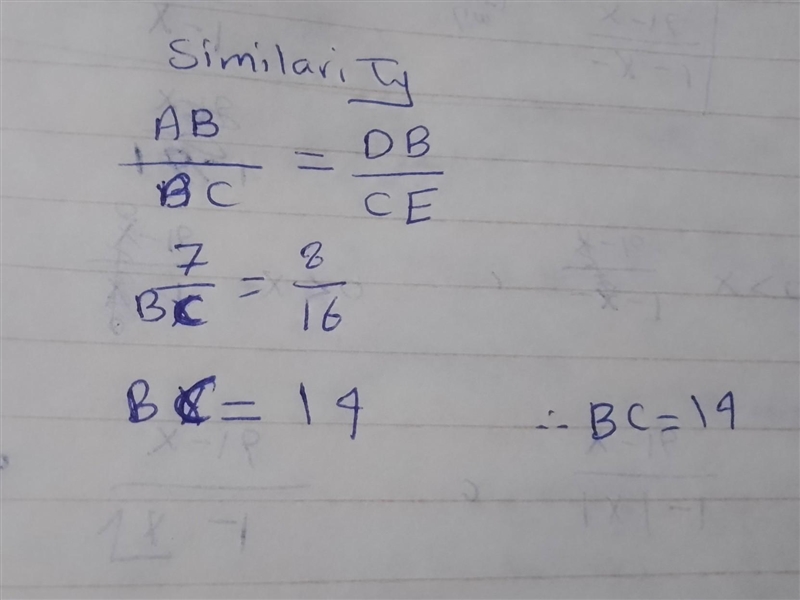 Similarity
AB / BC = DB / CE
7 / BC = 8 / 16
BC = 14 ∴ BC = 14